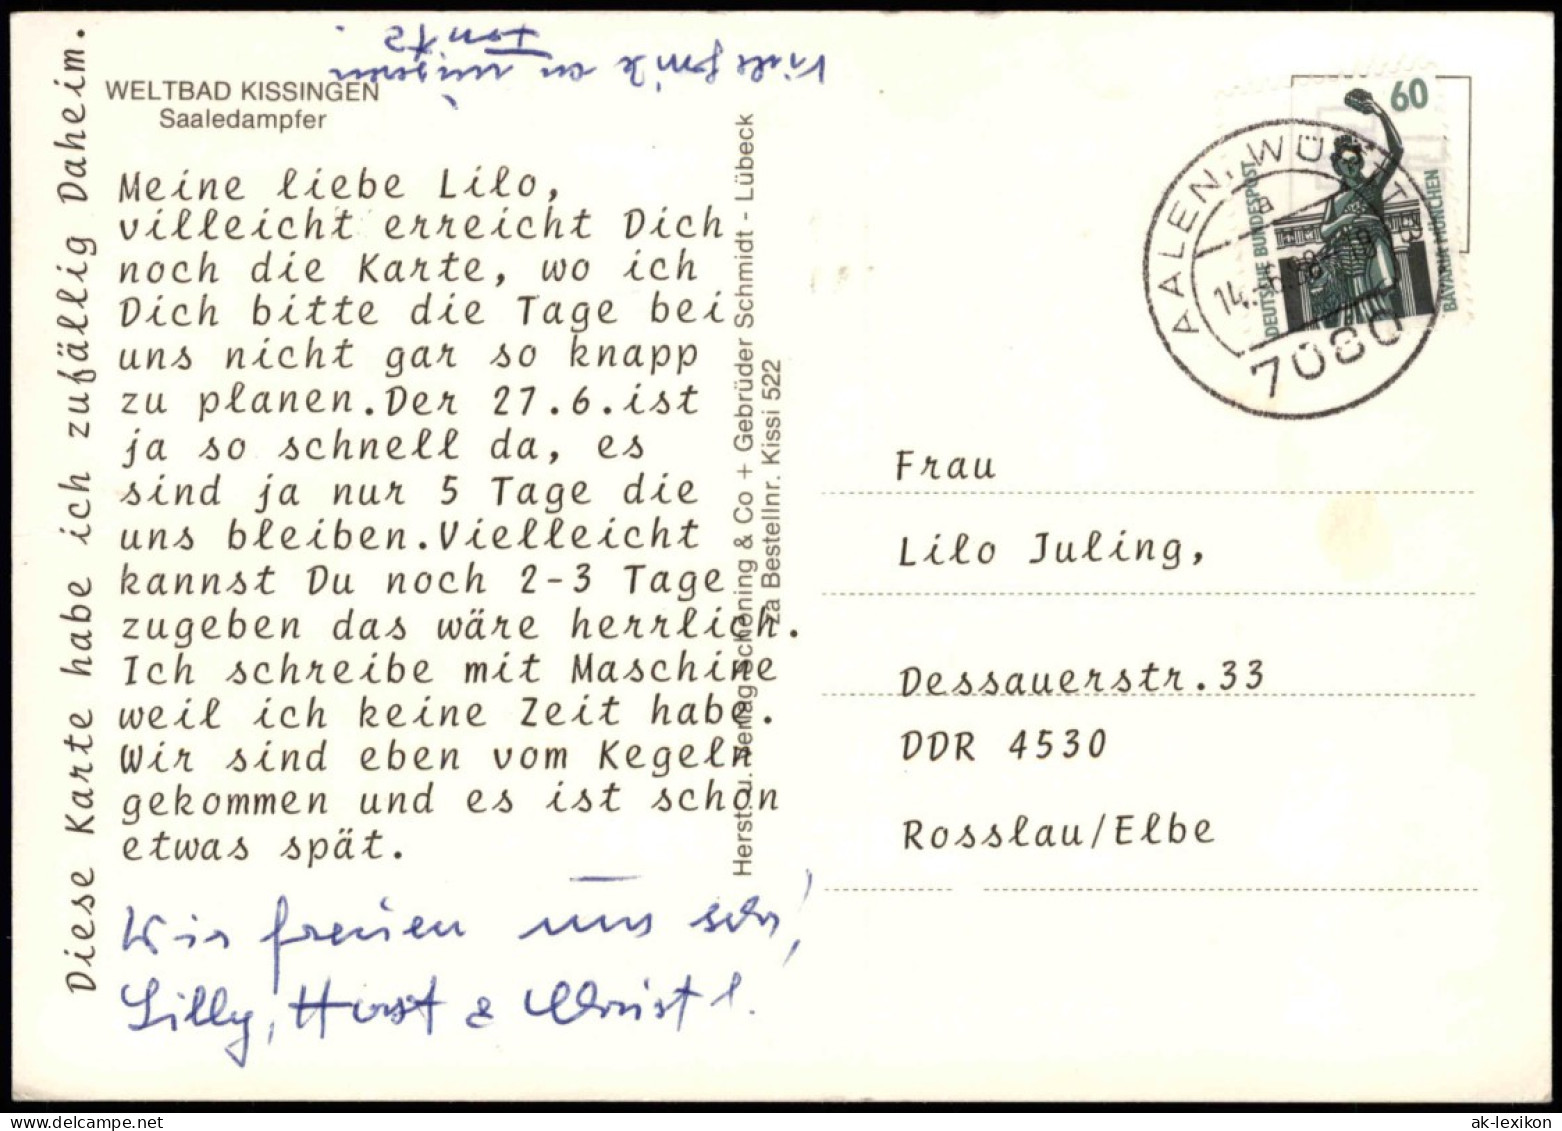 WELTBAD KISSINGEN
Saaledampfer
Meine liebe Lilo,
villeicht erreicht Dich
noch die Karte, wo ich
Dich bitte die Tage bei
uns nicht gar so knapp
zu planen.Der 27.6.ist
ja so schnell da, es
sind ja nur 5 Tage die
uns bleiben.Vielleicht
kannst Du noch 2-3 Tage
zugeben das wäre herrlich.
Ich schreibe mit Maschine
weil ich keine Zeit habe.
Wir sind eben vom Kegeln
gekommen und es ist schon
etwas spät.
Wir freuen uns sehr,
Lilly, Horst &
Diese Karte habe ich zufällig Daheim.
Viele Grüße an unseren
Herst. u. Verlag Schöning & Co + Gebrüder Schmidt - Lübeck
za Bestellnr. Kissi 522
60
DEUTSCHE BUNDESPOST
BAVARIA MÜNCHEN
AALEN, WÜRTT
a
7080
Frau
Lilo Juling,
Dessauerstr.33
DDR 4530
Rosslau/Elbe
www.delcampe.net
ak-lexikon